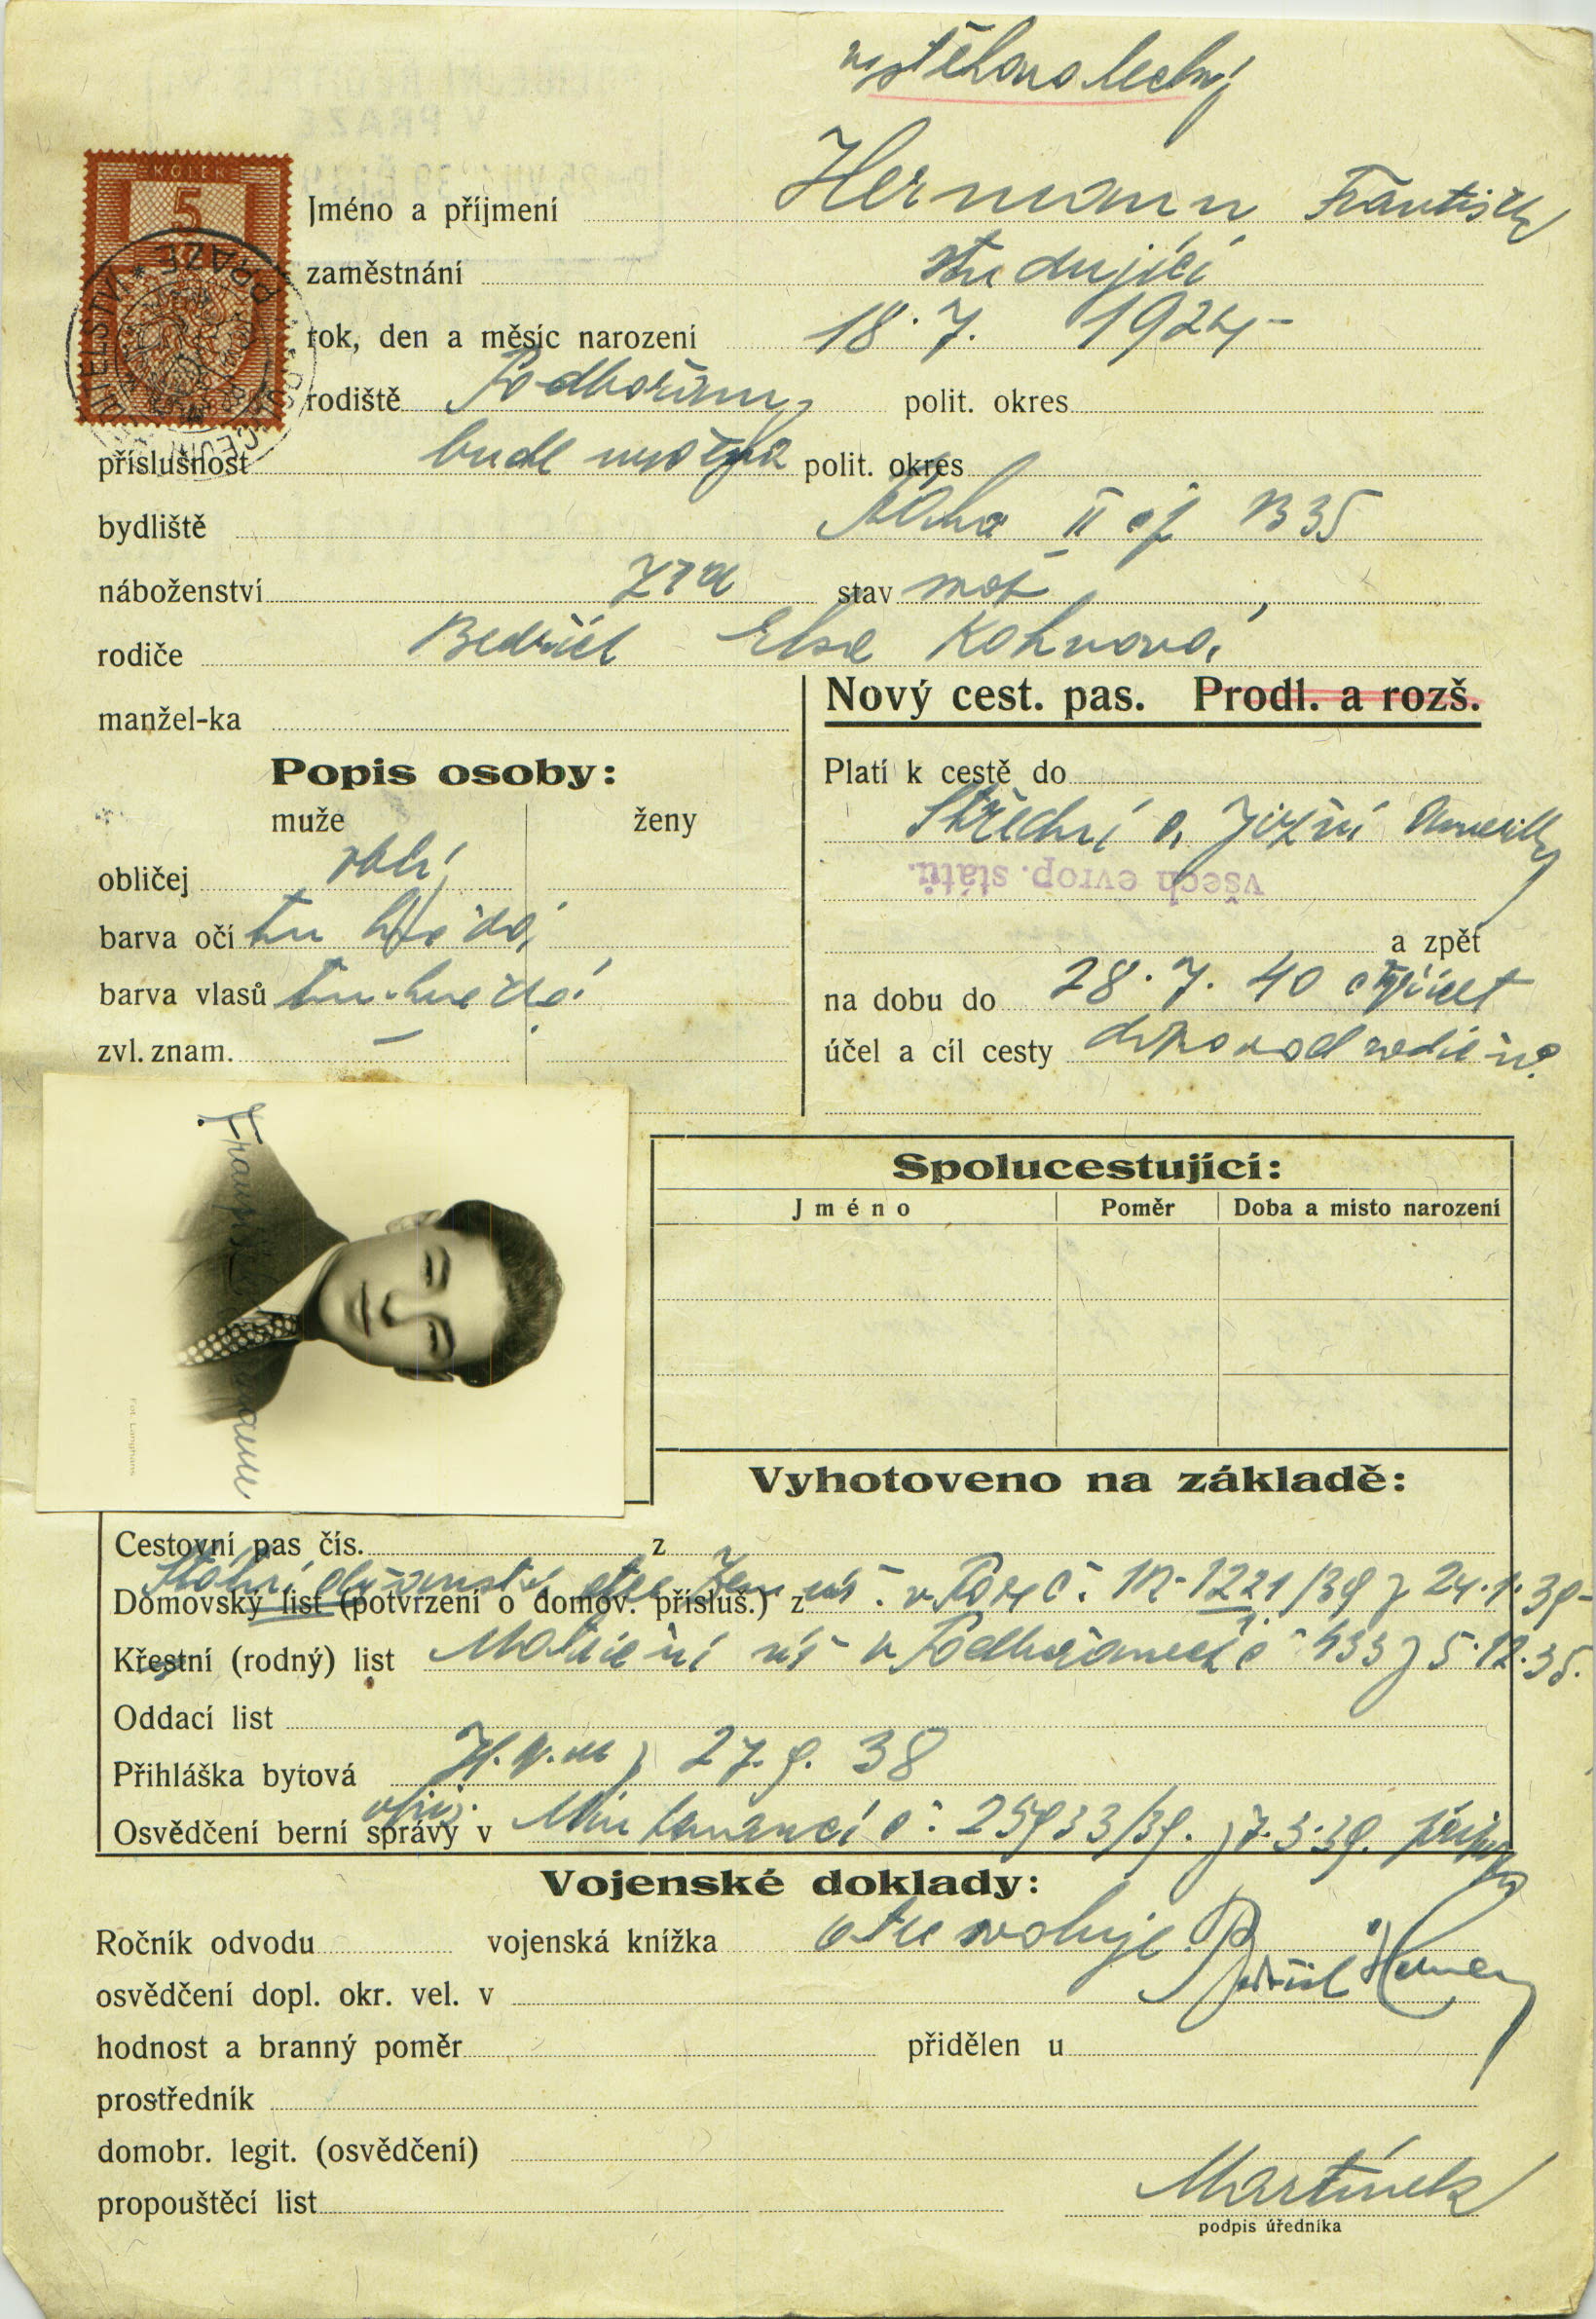 vystěhovalecký
KOLEK
5
Jméno a příjmení Hermann František
zaměstnání studující
rok, den a měsíc narození 18. 7. 1924
rodiště Podbořany polit. okres
příslušnost bude polit. okres
bydliště Praha II
náboženství stav
rodiče Bedřich Elsa Kohnová
manžel-ka
Nový cest. pas. Prodl. a rozš.
Popis osoby:
muže ženy
obličej
barva očí tm hnědá
barva vlasů tm. hnědá
zvl. znam. –
Platí k cestě do
Střední a Jižní Ameriky
všech evrop. států.
a zpět
na dobu do 28. 7. 40
účel a cíl cesty doprovod rodičů
František Hermann
Fot. Langhans
Spolucestující:
Jméno Poměr Doba a místo narození
Vyhotoveno na základě:
Cestovní pas čís. z
Státní občanství otce Zem úř. v Praze č. 1221/39 z 24.1.39
Domovský list (potvrzení o domov. přísluš.) z
Křestní (rodný) list Matriční úř v Podbořanech č 433 z 5.12.35.
Oddací list
Přihláška bytová 27. 9. 38
Osvědčení berní správy v Min financí č. 25933/39. z 7.3.39.
Vojenské doklady:
Ročník odvodu vojenská knížka otec svoluje
Bedřich Hermann
osvědčení dopl. okr. vel. v
hodnost a branný poměr přidělen u
prostředník
domobr. legit. (osvědčení)
propouštěcí list
Martínek
podpis úředníka